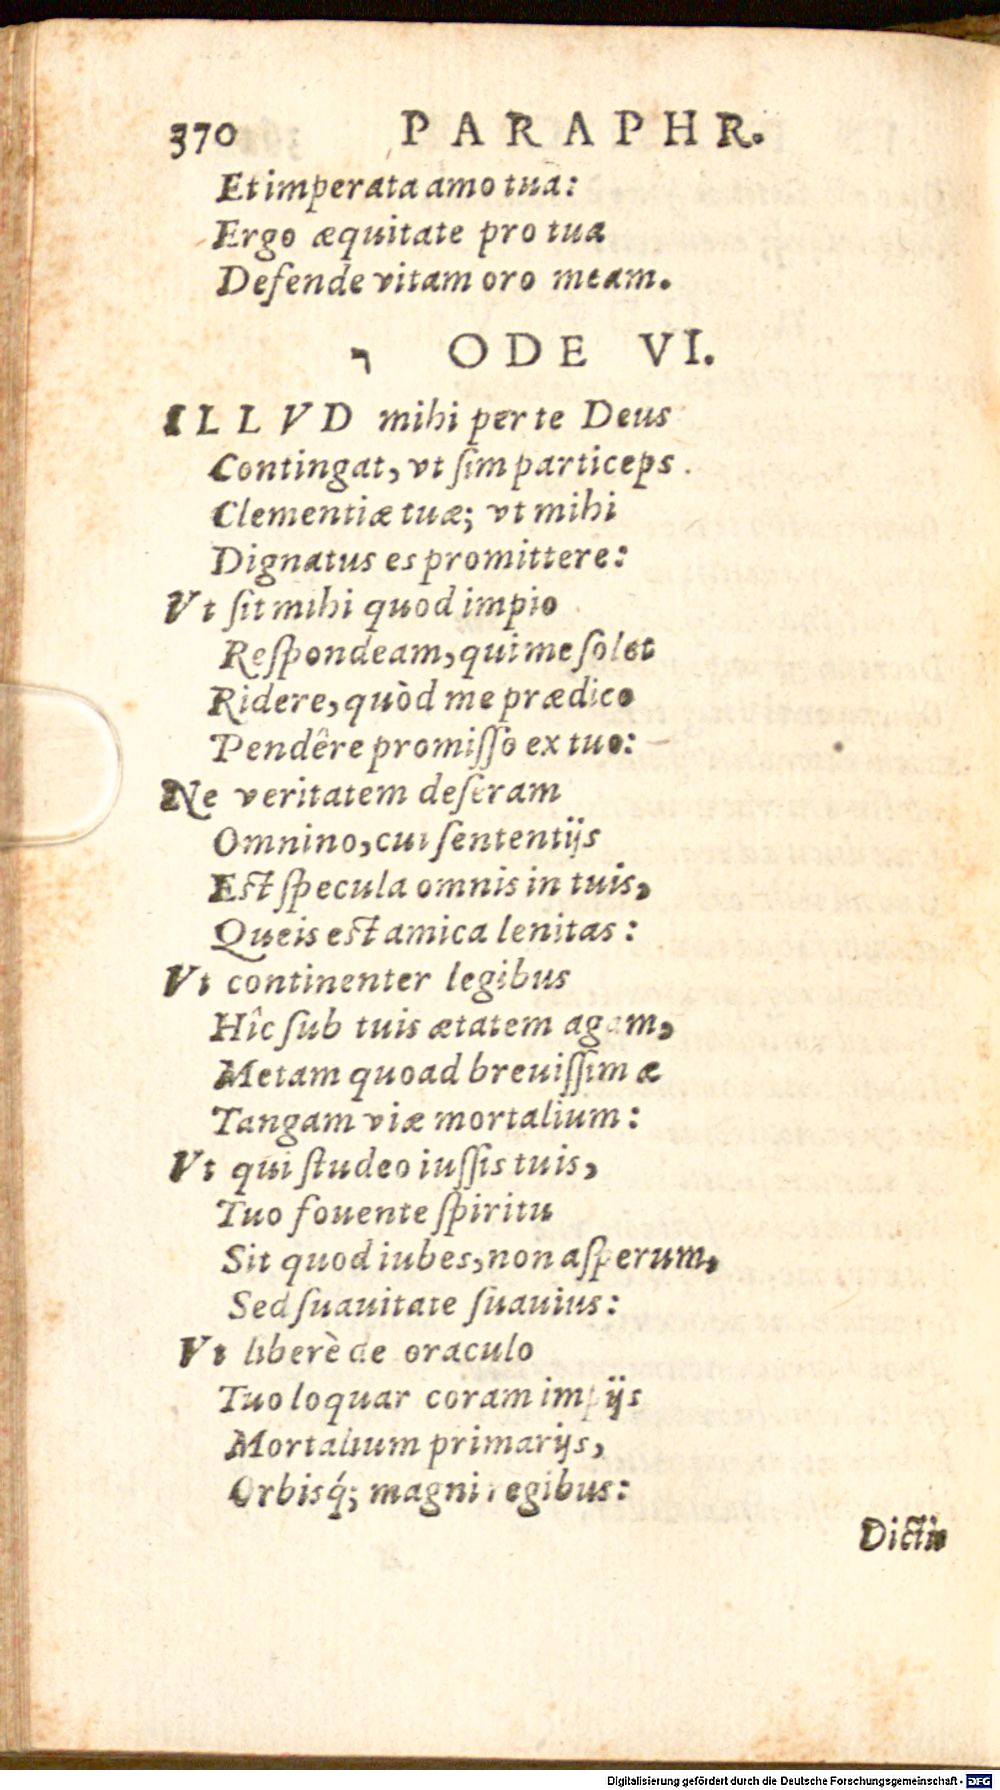 370 PARAPHR.
Et imperata amo tua:
Ergo æquitate pro tua
Defende vitam oro meam.
ו ODE VI.
ILLVD mihi per te Deus
Contingat, vt ſim particeps
Clementiæ tuæ; vt mihi
Dignatus es promittere:
Vt ſit mihi quod impio
Reſpondeam, qui me ſolet
Ridere, quòd me prædico
Pendêre promiſſo ex tuo:
Ne veritatem deſeram
Omnino, cui ſententijs
Eſt ſpecula omnis in tuis,
Queis eſt amica lenitas:
Vt continenter legibus
Hîc ſub tuis ætatem agam,
Metam quoad breuiſſimæ
Tangam viæ mortalium:
Vt qui ſtudeo iuſſis tuis,
Tuo fouente ſpiritu
Sit quod iubes, non aſperum,
Sed ſuauitate ſuauius:
Vt liberè de oraculo
Tuo loquar coram impijs
Mortalium primarijs,
Orbisq́; magni regibus:
Dictis
Digitalisierung gefördert durch die Deutsche Forschungsgemeinschaft - DFG